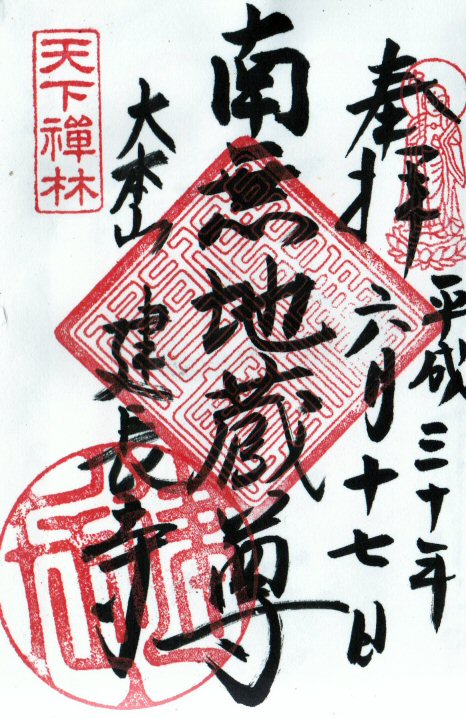 奉拝
平成三十年
六月十七日
南無地蔵尊
大本山
建長寺
天下禅林